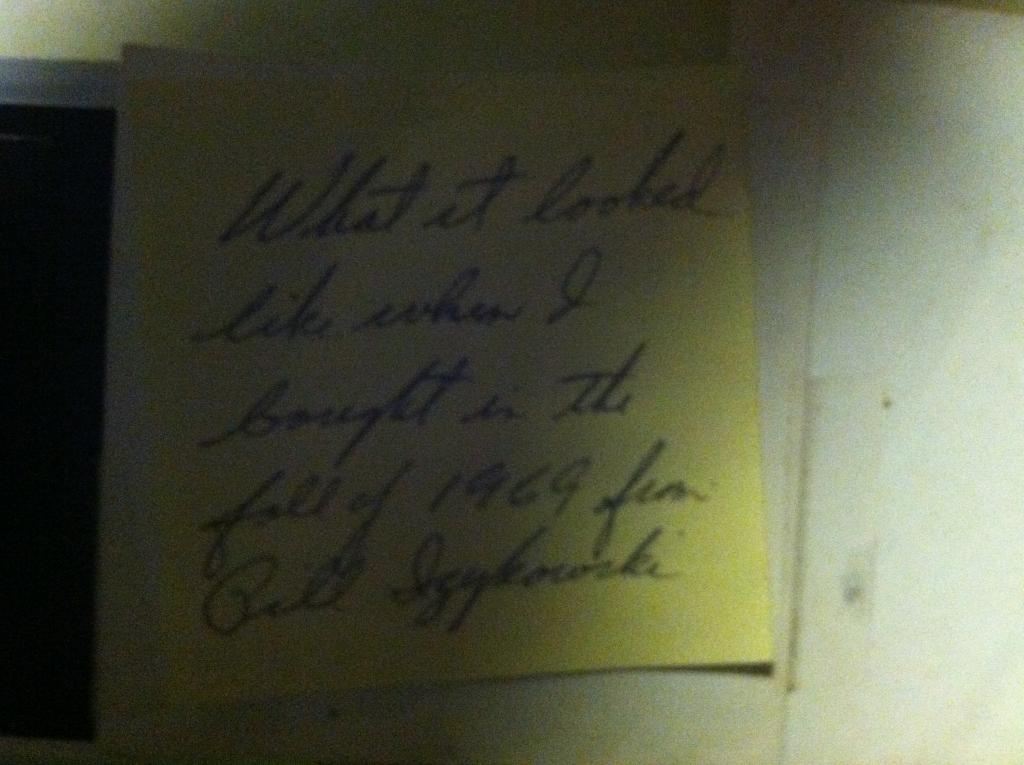 What it looked
like when I
bought in the
fall of 1969 from
Bill Izykowski